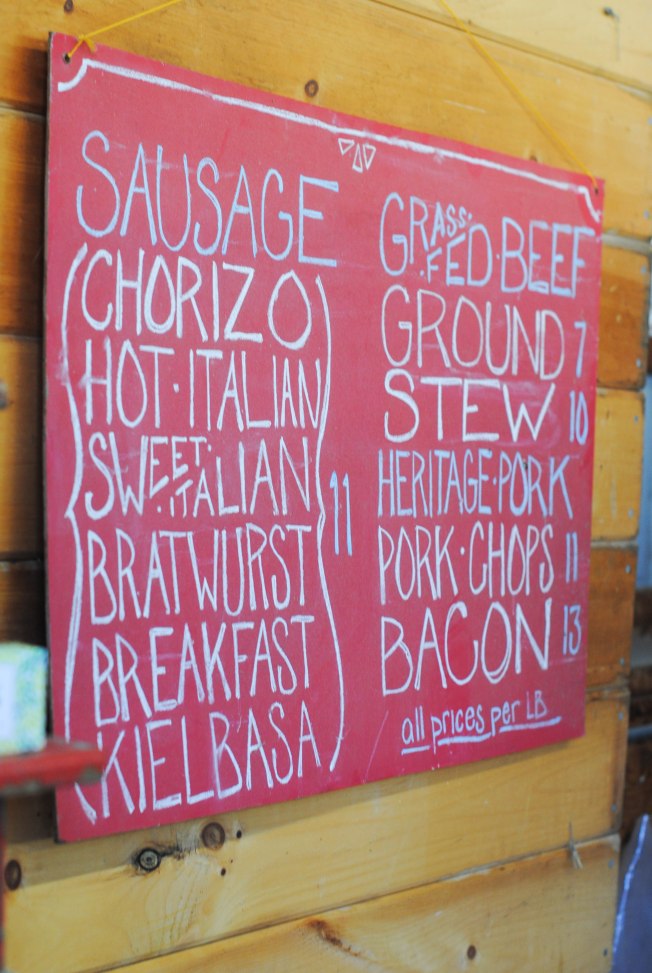 SAUSAGE
CHORIZO
HOT·ITALIAN
SWEET·ITALIAN
BRATWURST
BREAKFAST
KIELBASA
11
GRASS·FED·BEEF
GROUND 7
STEW 10
HERITAGE·PORK
PORK·CHOPS 11
BACON 13
all prices per LB